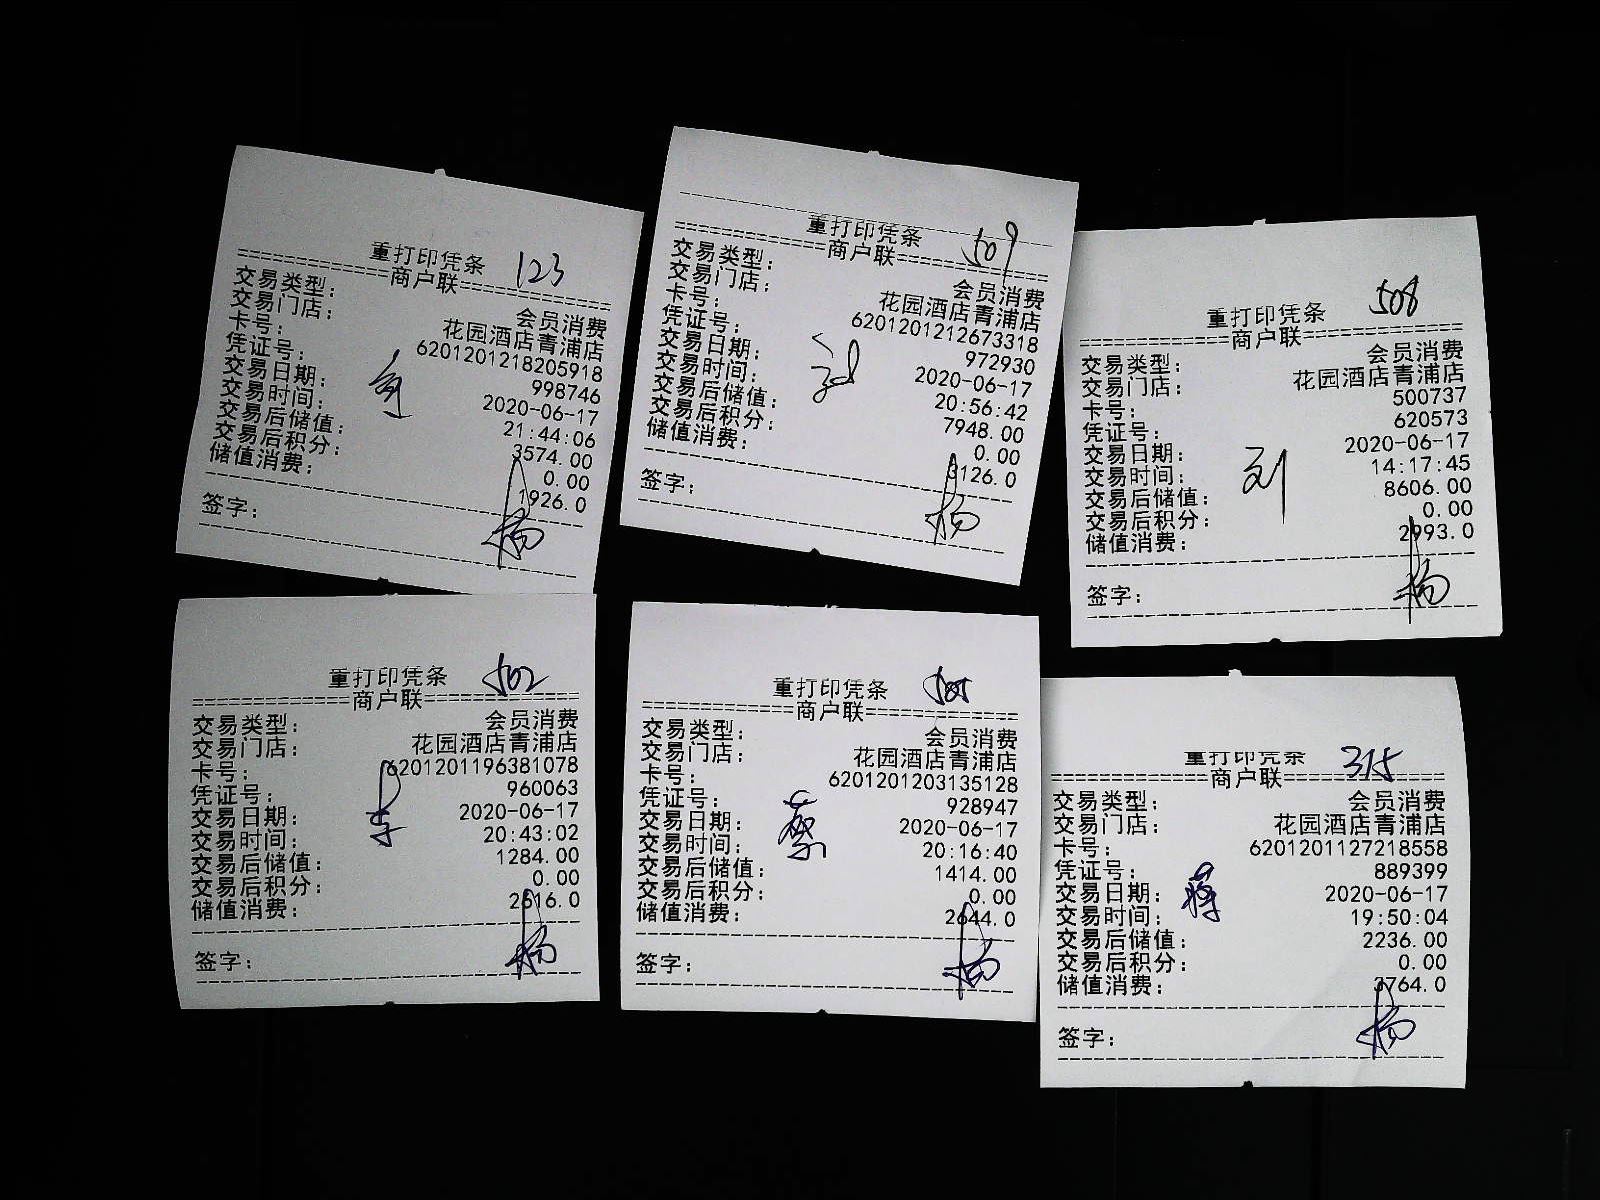 重打印凭条 123
商户联
交易类型： 会员消费
交易门店： 花园酒店青浦店
卡号： 6201201218205918
凭证号： 998746
交易日期： 2020-06-17
交易时间： 21:44:06
交易后储值： 3574.00
交易后积分： 0.00
储值消费： 1926.0
签字： 杨
重打印凭条 509
商户联
交易类型： 会员消费
交易门店： 花园酒店青浦店
卡号： 6201201212673318
凭证号： 972930
交易日期： 2020-06-17
交易时间： 20:56:42
交易后储值： 7948.00
交易后积分： 0.00
储值消费： 3126.0
签字： 杨
重打印凭条 508
商户联
交易类型： 会员消费
交易门店： 花园酒店青浦店
卡号： 500737
凭证号： 620573
交易日期： 2020-06-17
交易时间： 14:17:45
刘
交易后储值： 8606.00
交易后积分： 0.00
储值消费： 2993.0
签字： 杨
重打印凭条 502
商户联
交易类型： 会员消费
交易门店： 花园酒店青浦店
卡号： 6201201196381078
凭证号： 960063
交易日期： 2020-06-17
李
交易时间： 20:43:02
交易后储值： 1284.00
交易后积分： 0.00
储值消费： 2616.0
签字： 杨
重打印凭条 505
商户联
交易类型： 会员消费
交易门店： 花园酒店青浦店
卡号： 6201201203135128
凭证号： 928947
交易日期： 2020-06-17
蔡
交易时间： 20:16:40
交易后储值： 1414.00
交易后积分： 0.00
储值消费： 2644.0
签字： 杨
重打印凭条 315
商户联
交易类型： 会员消费
交易门店： 花园酒店青浦店
卡号： 6201201127218558
凭证号： 889399
交易日期： 2020-06-17
蒋
交易时间： 19:50:04
交易后储值： 2236.00
交易后积分： 0.00
储值消费： 3764.0
签字： 杨